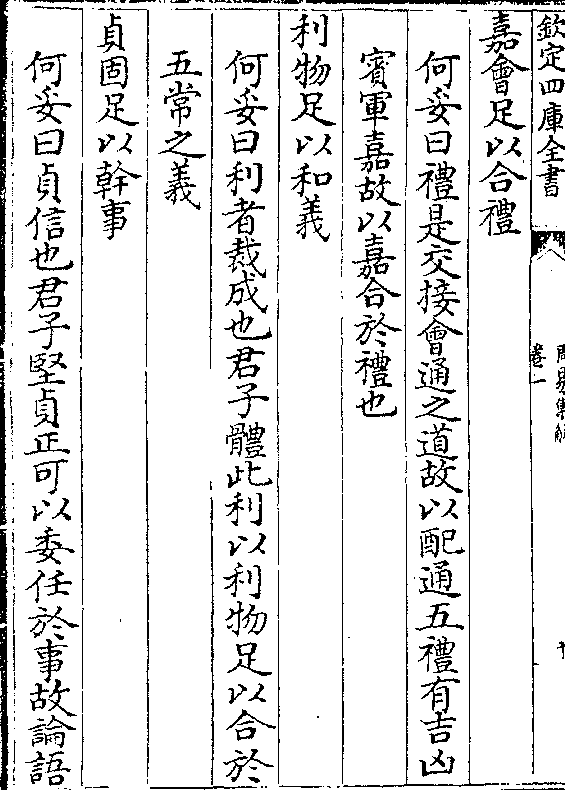 欽定四庫全書
周易集解
卷一
嘉會足以合禮
何妥曰禮是交接會通之道故以配通五禮有吉凶
賓軍嘉故以嘉合於禮也
利物足以和義
何妥曰利者裁成也君子體此利以利物足以合於
五常之義
貞固足以幹事
何妥曰貞信也君子堅貞正可以委任於事故論語